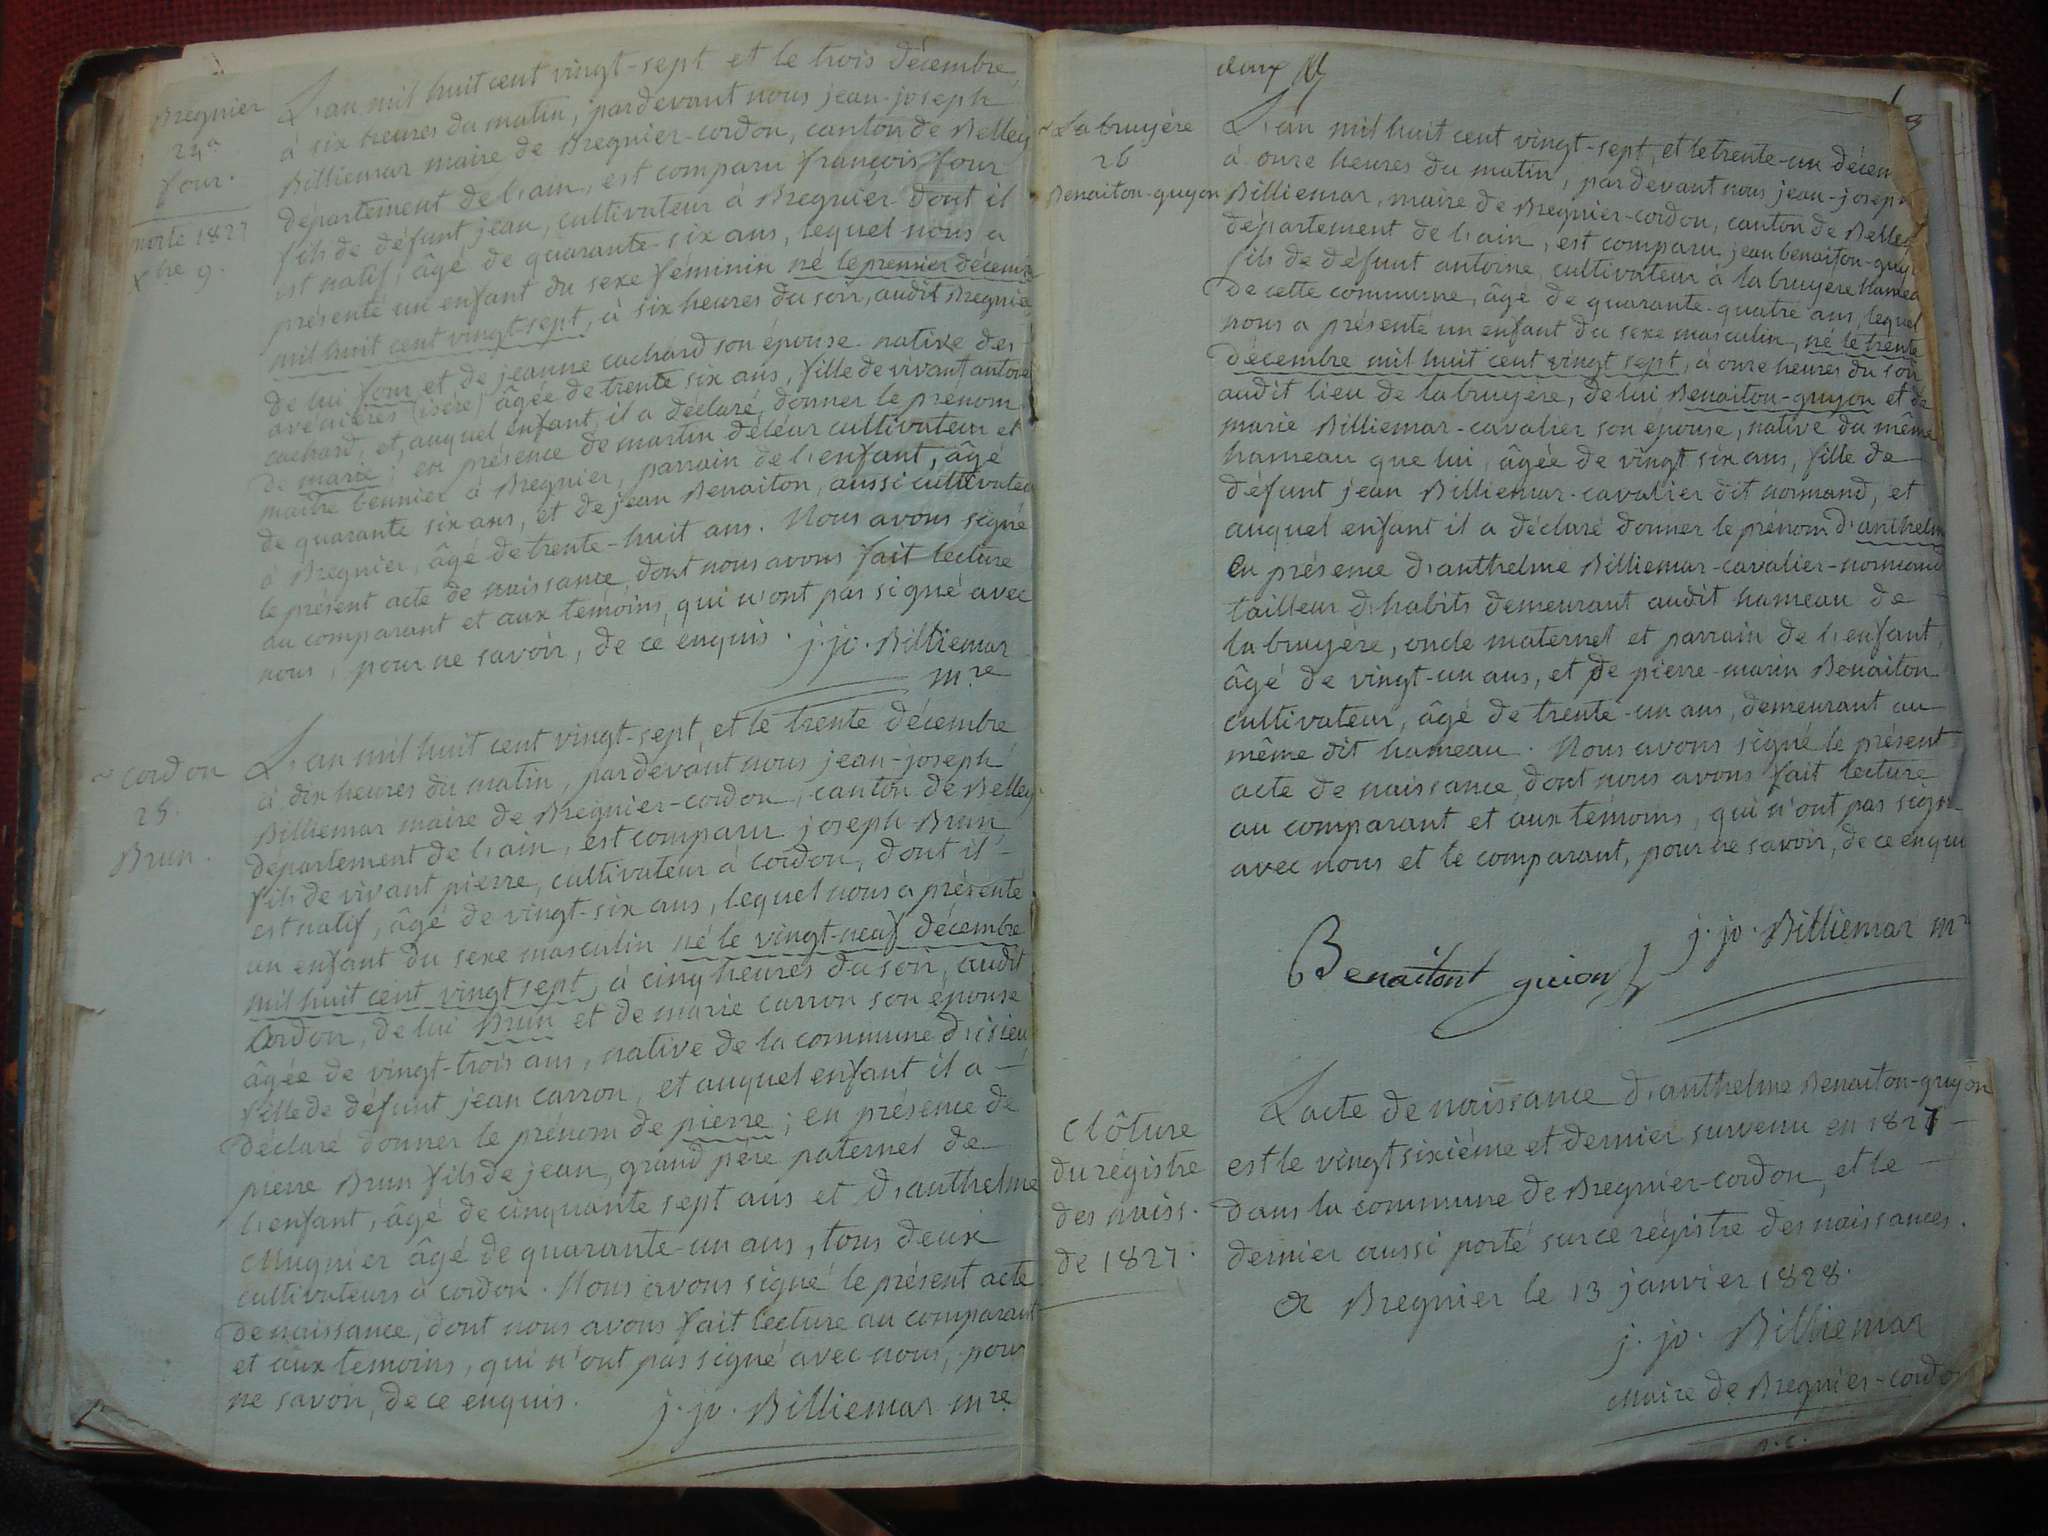 Bregnier
24e
four.
morte 1827
xbre 9.
L'an mil huit cent vingt-sept et le trois décembre,
à six heures du matin, pardevant nous jean-joseph
Billiemar maire de Bregnier-cordon, canton de Belley
département de l'ain, est comparu françois four
fils de défunt jean, cultivateur à Bregnier dont il
est natif, âgé de quarante-six ans, lequel nous a
présenté un enfant du sexe féminin né le premier décembre
mil huit cent vingt sept, à six heures du soir, audit Bregnier
de lui four et de jeanne cachard son épouse native des
avenières (isère) âgée de trente six ans, fille de vivant antoine
cachard, et, auquel enfant il a déclaré donner le prénom
de marie; en présence de martin déléar cultivateur et
maître bennier à Bregnier, parrain de l'enfant, âgé
de quarante six ans, et de jean Benaiton, aussi cultivateur
à Bregnier, âgé de trente-huit ans. Nous avons signé
le présent acte de naissance, dont nous avons fait lecture
au comparant et aux témoins, qui n'ont pas signé avec
nous, pour ne savoir, de ce enquis. j. jo. Billiemar
mre
~ cordon
25.
Brun.
L'an mil huit cent vingt-sept, et le trente décembre
à dix heures du matin, pardevant nous jean-joseph
Billiemar maire de Bregnier-cordon, canton de Belley
département de l'ain, est comparu joseph Brun,
fils de vivant pierre, cultivateur à cordon, dont il
est natif, âgé de vingt-six ans, lequel nous a présenté
un enfant du sexe masculin né le vingt-neuf décembre
mil huit cent vingt sept, à cinq heures du soir, audit
Cordon, de lui Brun et de marie carron son épouse
âgée de vingt-trois ans, native de la commune d'isieu
fille de défunt jean carron, et auquel enfant il a
déclaré donner le prénom de pierre; en présence de
pierre Brun fils de jean, grand père paternel de
l'enfant, âgé de cinquante sept ans et d'anthelme
Mugnier âgé de quarante-un ans, tous deux
cultivateurs à cordon. Nous avons signé le présent acte
de naissance, dont nous avons fait lecture au comparant
et aux témoins, qui n'ont pas signé avec nous, pour
ne savoir, de ce enquis. j. jo. Billiemar mre
deux
~ La bruyère
26
Benaiton-guyon
L'an mil huit cent vingt-sept, et le trente-un décem
à onze heures du matin, pardevant nous jean-joseph
Billiemar, maire de Bregnier-cordon, canton de Belley
département de l'ain, est comparu jean benaiton-guyo
fils de défunt antoine, cultivateur à la bruyère hamea
de cette commune, âgé de quarante-quatre ans, lequel
nous a présenté un enfant du sexe masculin, né le trente
décembre mil huit cent vingt sept, à onze heures du soir
audit lieu de labruyère, de lui Benaiton-guyon et de
marie Billiemar-cavalier son épouse, native du même
hameau que lui, âgée de vingt six ans, fille de
défunt jean Billiemar-cavalier dit normand, et
auquel enfant il a déclaré donner le prénom d'anthelm
en présence d'anthelme Billiemar-cavalier-normand
tailleur d'habits demeurant audit hameau de
la bruyère, oncle maternel et parrain de l'enfant,
âgé de vingt-un ans, et de pierre-marin Benaiton
cultivateur, âgé de trente-un ans, demeurant au
même dit hameau. Nous avons signé le présent
acte de naissance, dont nous avons fait lecture
au comparant et aux témoins, qui n'ont pas signé
avec nous et le comparant, pour ne savoir, de ce enqui
Benaitont guion j. jo. Billiemar mre
Clôture
du régistre
des naiss.
de 1827.
L'acte de naissance d'anthelme Benaiton-guyon
est le vingt sixième et dernier survenu en 1827
dans la commune de Bregnier-cordon, et le
dernier aussi porté sur ce régistre des naissances.
a Bregnier le 13 janvier 1828.
j. jo. Billiemar
Maire de Bregnier-cordon